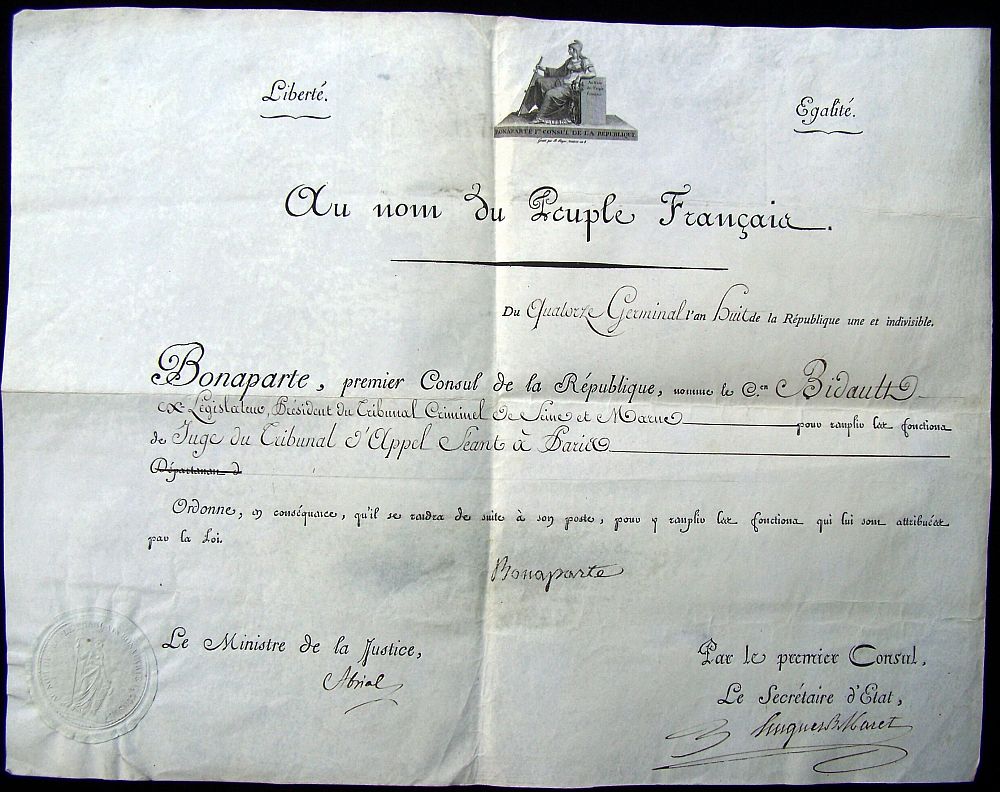 Liberté.
Egalité.
BONAPARTE 1er CONSUL DE LA REPUBLIQUE
Au nom du Peuple Français.
Du Quatorze Germinal l'an huit de la République une et indivisible.
Bonaparte, premier Consul de la République, nomme le C.en Bidault
ex Législateur, Président du Tribunal Criminel de Seine et Marne pour remplir les fonctions
de Juge du Tribunal d'Appel Séant à Paris
Département d
Ordonne, en conséquence, qu'il se rendra de suite à son poste, pour y remplir les fonctions qui lui sont attribuées
par la Loi.
Bonaparte
Le Ministre de la Justice,
Abrial
Par le premier Consul,
Le Secrétaire d'Etat,
Hugues B. Maret